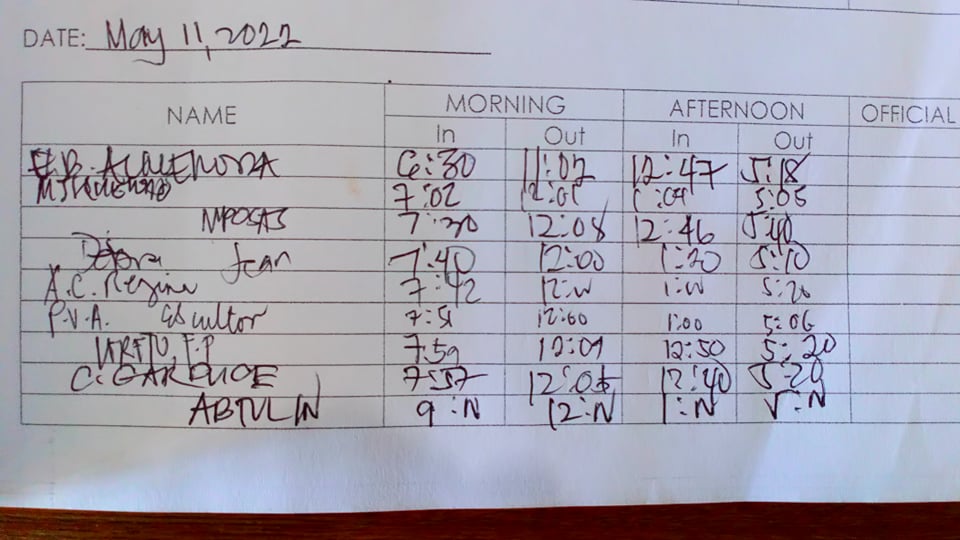 DATE: May 11, 2022
NAME MORNING AFTERNOON OFFICIAL
In Out In Out
6:30 11:02 12:47 5:18
7:02 5:05
7:30 12:08 12:46 5:40
Jean 7:40 12:00 1:20 5:10
A.C. Regina 7:42 12:00 1:00 5:20
P.V.A. Escultor 7:51 12:00 1:00 5:06
7:59 12:09 12:50 5:20
C. GARDUCE 7:57 12:05 12:40 5:20
ABTULIN 9:N 12:N 1:N 5:N